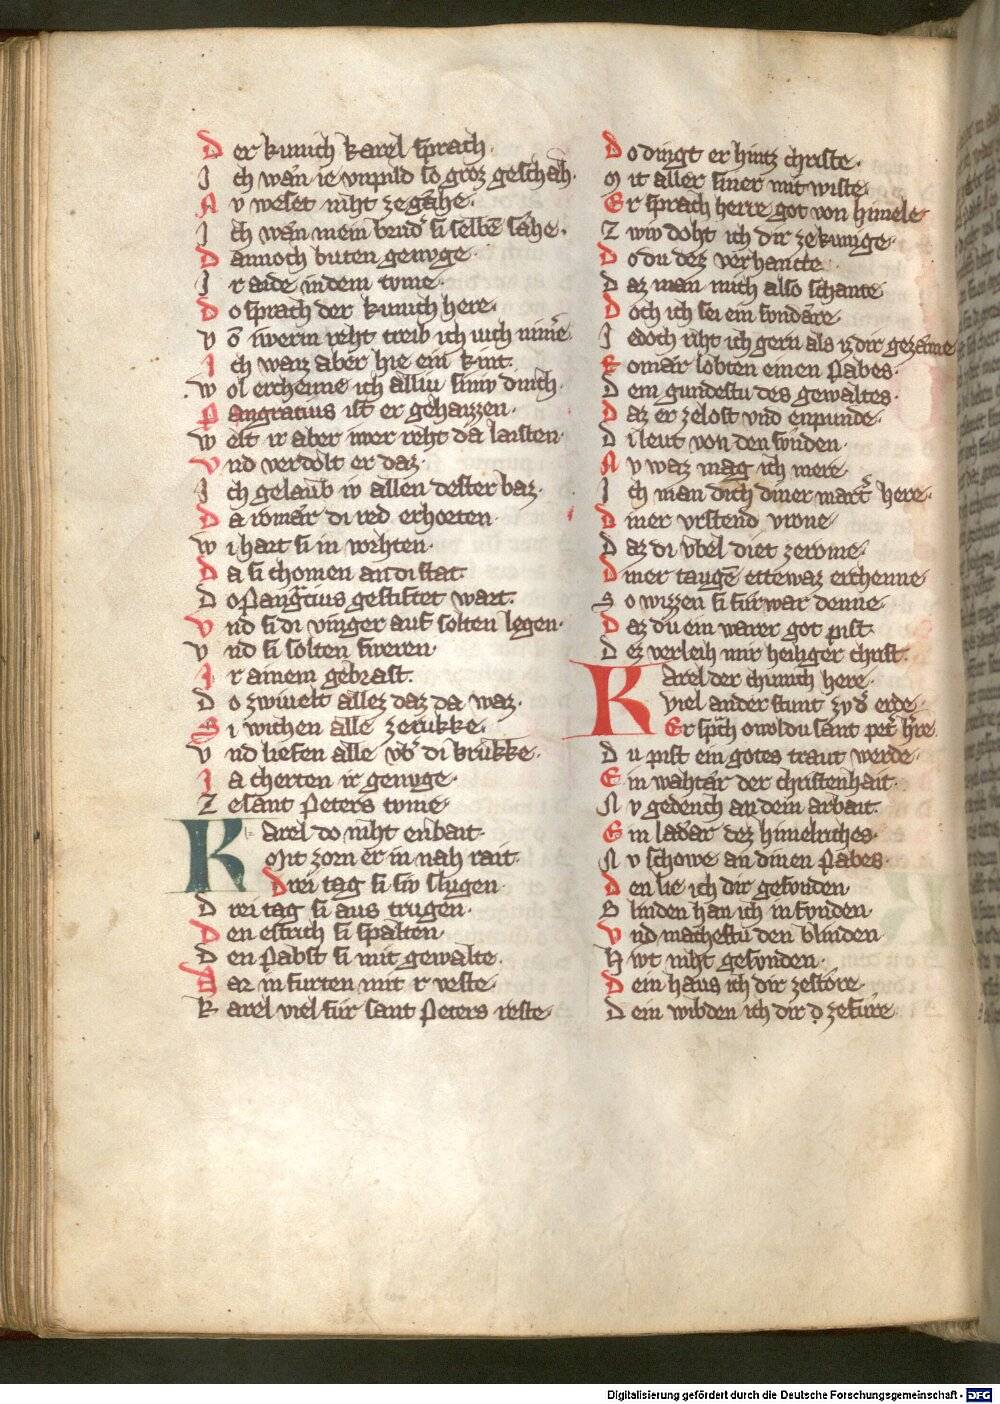 Der kunich karel sprach.
Ich wan ie vnpild so groz geschah.
Nv weset niht ze gahe.
Ich wan mein brud̾ si selbē sahe.
Dannoch buten genvge
Ir aide in dem tvme.
Do sprach der kunich here.
vō iwerm reht treib ich iuch nim̄e
Ich waz aber hie ein kint.
wol erchenne ich alliu siniv dinch.
Pangratius ist er gehaizzen.
welt ir aber iwer reht da laisten.
vnd verdolt er daz.
Ich gelaub iv allen dester baz.
Da romar di red erhorten.
wi hart si in vorhten.
Da si chomen an di stat.
Do Pangͣcius gestiftet wart.
vnd si di vinger auf solten legen.
vnd si solten sweren.
Ir ainem gebrast.
Do zwiuelt allez daz da waz.
Si wichen alle zerukke.
vnd liefen alle vb̾ di brukke.
Ia cherten ir genvge.
Ze sant Peters tvme.
Karel do niht enbait.
Mit zorn er in nah rait.
Drei tag si siv slugen
Drei tag si aus trugen.
Den estrich si spalten.
Den Pabst si mit gewalte.
Dar in furten mit r veste.
Karel viel fur sant Peters reste.
Do dingt er hintz christe.
Mit aller siner mit wiste.
Er sprach herre got von himele
Zwiv doht ich dir ze kunige.
Do du dez verhancte
Daz man mich also schante
Doch ich sei ein svndare.
Iedoch riht ich gern als iz dir gezame
Romar lobten einen Pabes.
Dem gundestu des gewaltes.
Daz er zelost vnd enpunde.
Di leut von den sunden.
Nv waz mag ich mere
Ich man dich diner mart̾ here.
Diner vrstend vrone
Daz di vbel diet ze rome.
Diner taugē ettewaz erchenne
So wizzen si fur war denne.
Daz du ein warer got pist.
Dez verleih mir heiliger christ.
Karel der chunich here.
viel ander stunt zv d̾ erde
Er sp̾ch owol du sant pet̾ h̾re
Du pist ein gotes traut werde.
Ein wahtar der christenhait.
Nv gedench an dein arbait.
Ein ladar dez himelriches.
Nv schowe an dinen Pabes
Den lie ich dir gesvnden.
Blinden han ich in fvnden.
vnd machestu den blinden.
Hivt niht gesvnden.
Dein haus ich dir zestore.
Dein wibden ich dir ḍ zefure.